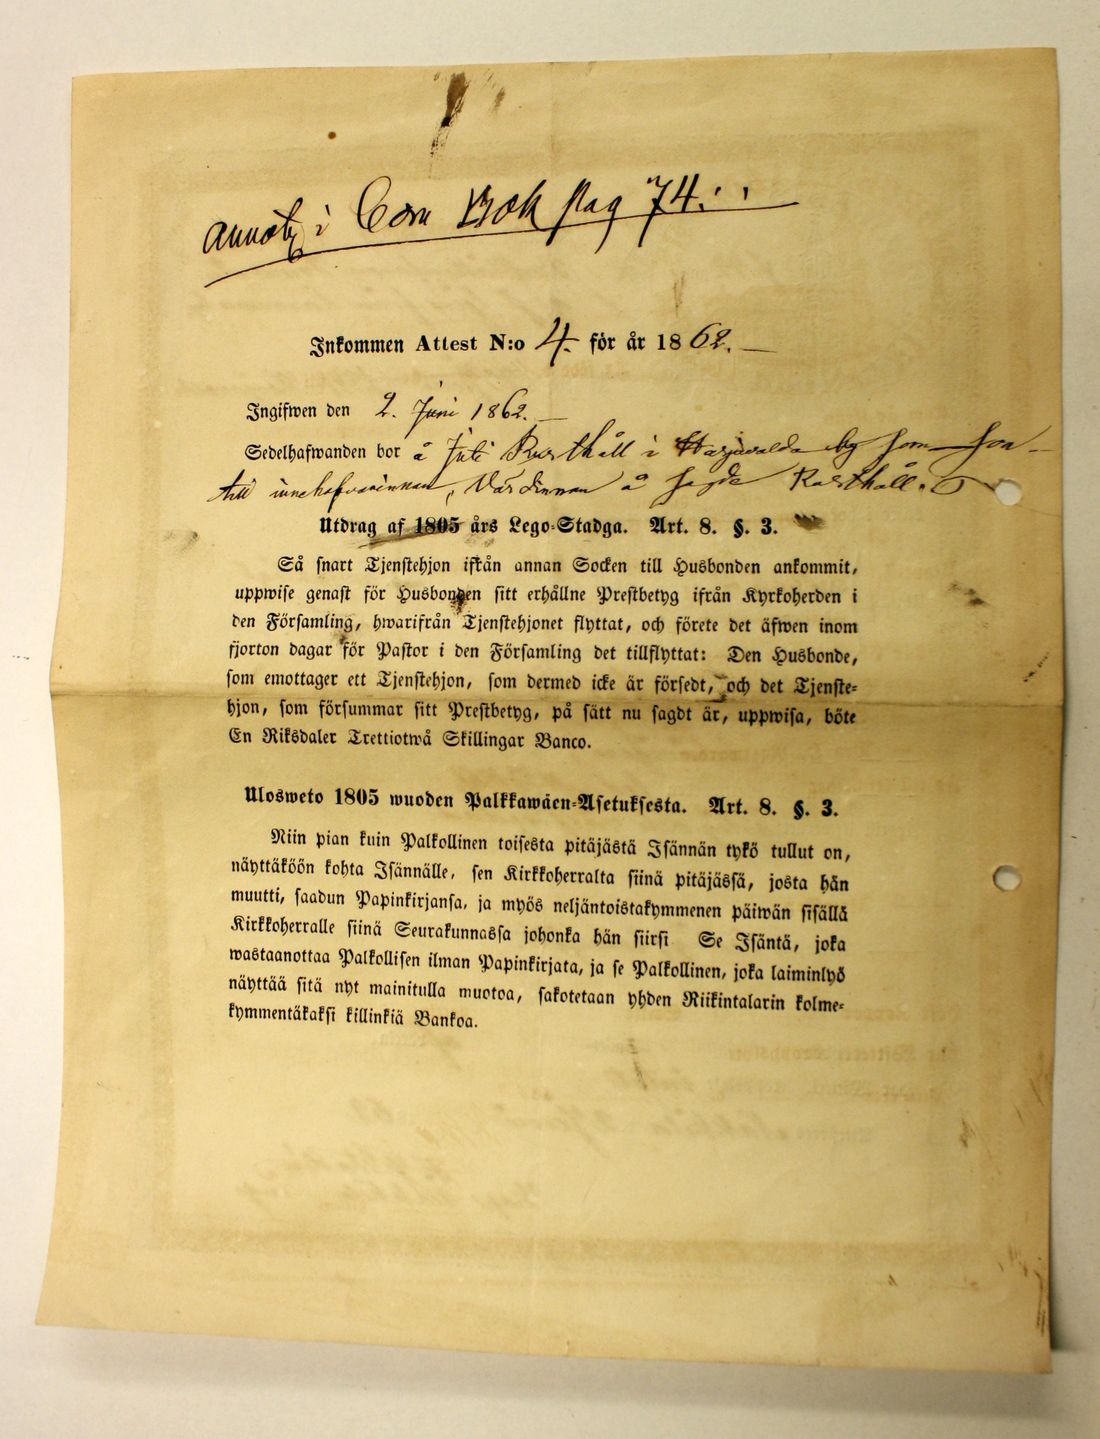 Annot: i Com Bok pag 74.
Inkommen Attest N:o 4. för år 1862.
Ingifwen den 2. Juni 1862.
Sedelhafwanden bor å Juti Rusthåll i by som son
till innehafvarinnan, Värdinnan å sagde Rusthåll.
Utdrag af 1805 års Lego-Stadga. Art. 8. §. 3.
Så snart Tjenstehjon ifrån annan Socken till Husbonden ankommit,
uppwise genast för Husbonden sitt erhållne Prestbetyg ifrån Kyrkoherden i
den Församling, hwarifrån Tjenstehjonet flyttat, och förete det äfwen inom
fjorton dagar för Pastor i den Församling det tillflyttat: Den Husbonde,
som emottager ett Tjenstehjon, som dermed icke är försedt, och det Tjenste-
hjon, som försummar sitt Prestbetyg, på sätt nu sagdt är, uppwisa, böte
En Riksdaler Trettiotwå Skillingar Banco.
Ulosweto 1805 wuoden Palkkawäen-Asetuksesta. Art. 8. §. 3.
Niin pian kuin Palkollinen toisesta pitäjästä Isännän tykö tullut on,
näyttäköön kohta Isännälle, sen Kirkkoherralta siinä pitäjässä, josta hän
muutti, saadun Papinkirjansa, ja myös neljäntoistakymmenen päiwän sisällä
Kirkkoherralle siinä Seurakunnassa johonka hän siirsi Se Isäntä, joka
wastaanottaa Palkollisen ilman Papinkirjata, ja se Palkollinen, joka laiminlyö
näyttää sitä nyt mainitulla muotoa, sakotetaan yhden Riikintalarin kolme-
kymmentäkaksi killinkiä Bankoa.